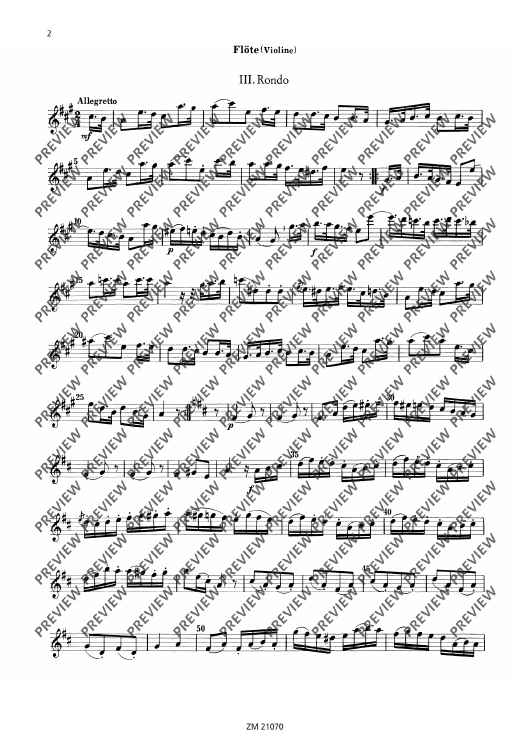 2
Flöte (Violine)
III. Rondo
Allegretto
mf
5
10
p
f
15
20
25
p
30
f
35
40
45
50
ZM 21070
PREVIEW